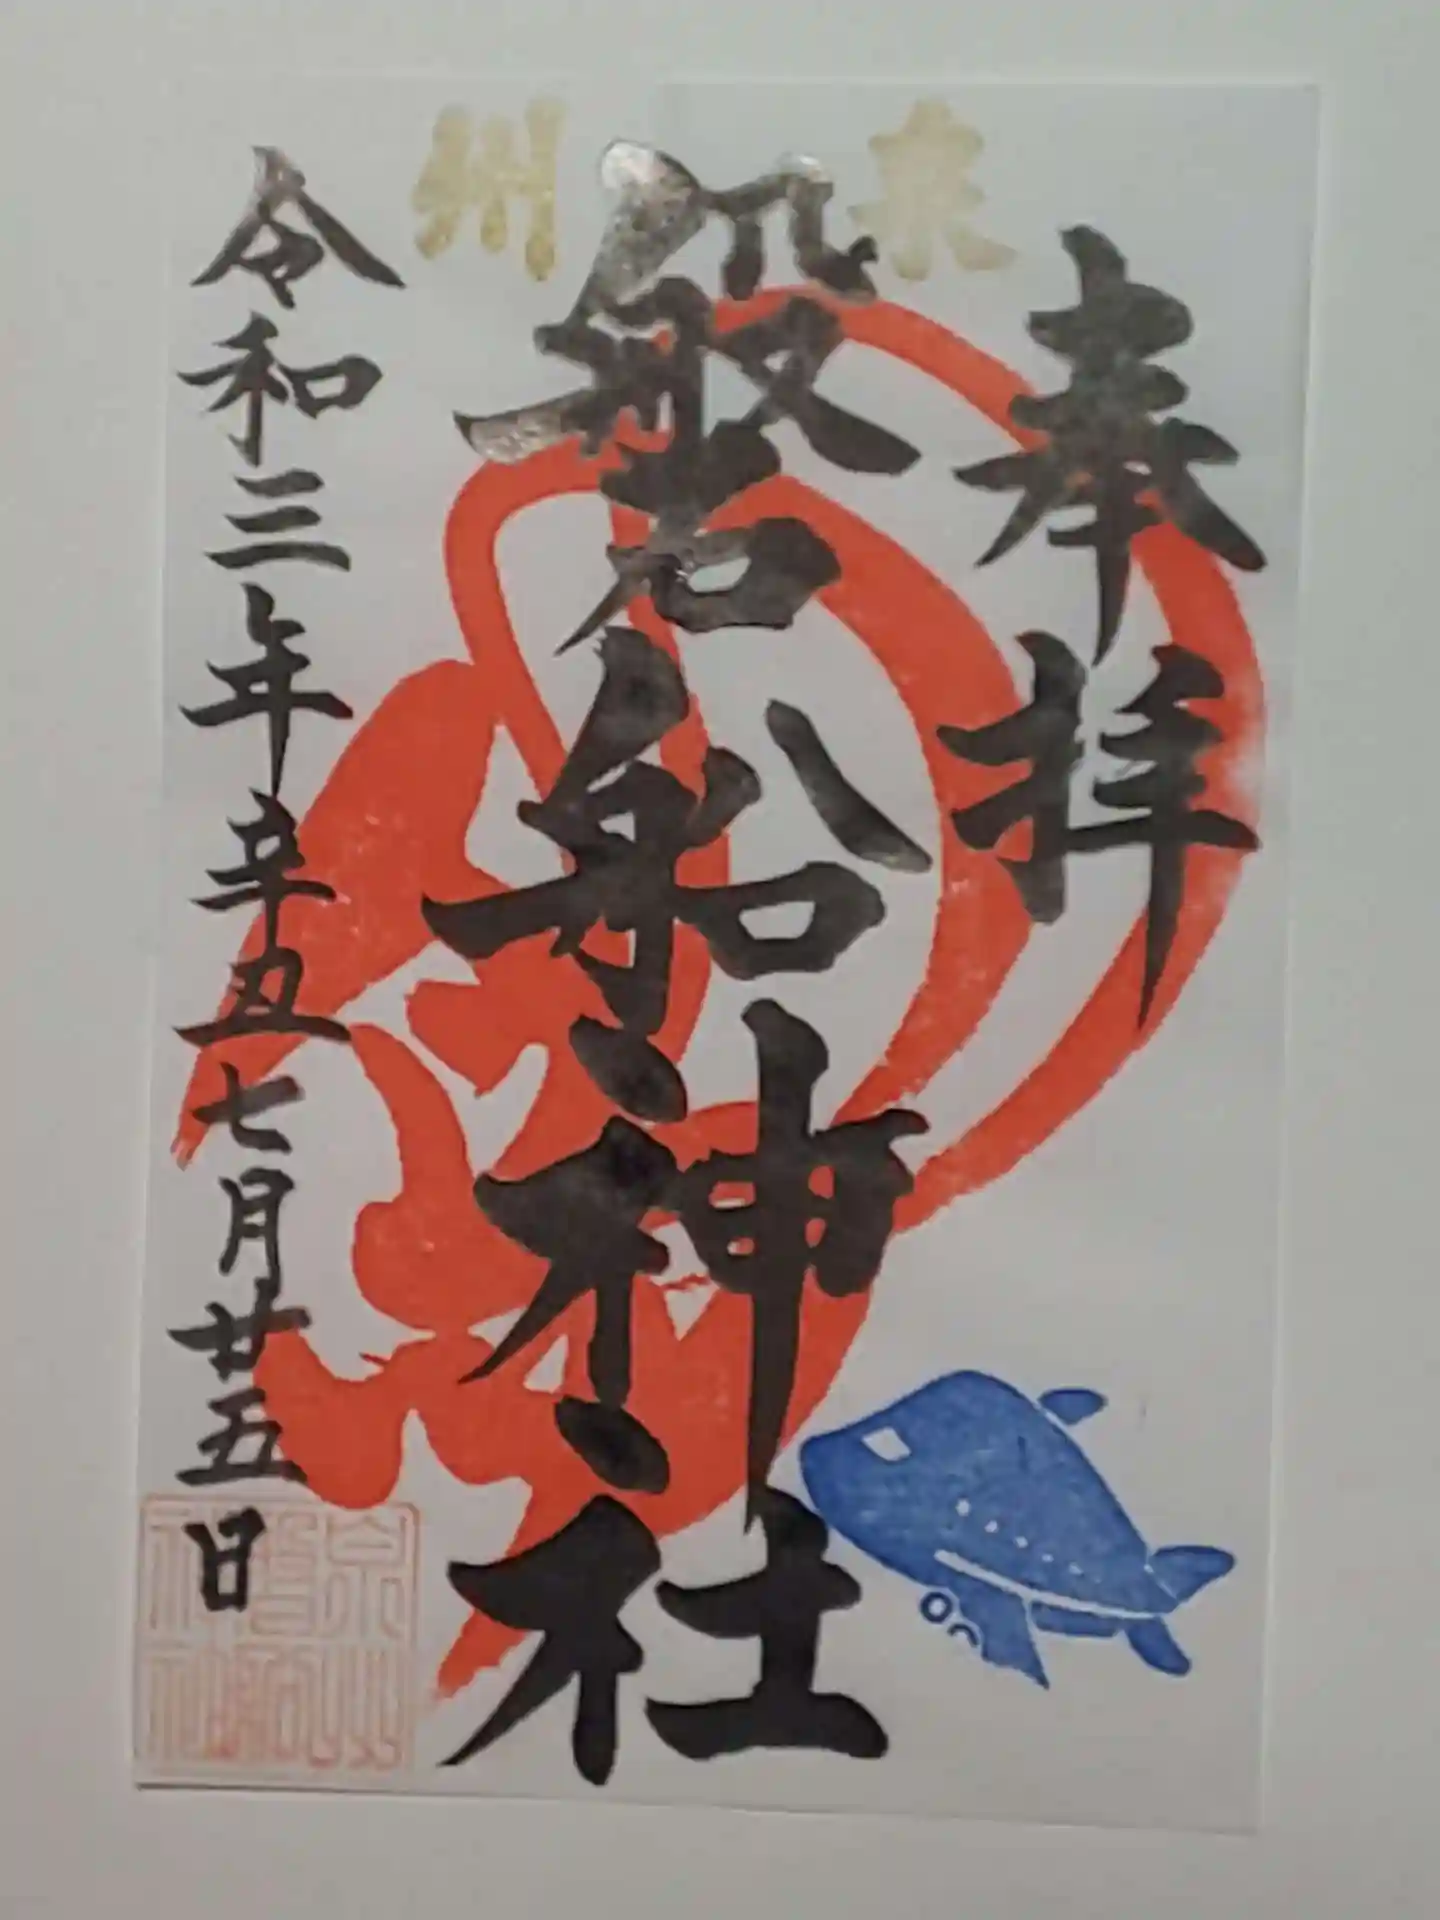 奉拝
泉州
磐船神社
令和三年辛丑七月廿五日